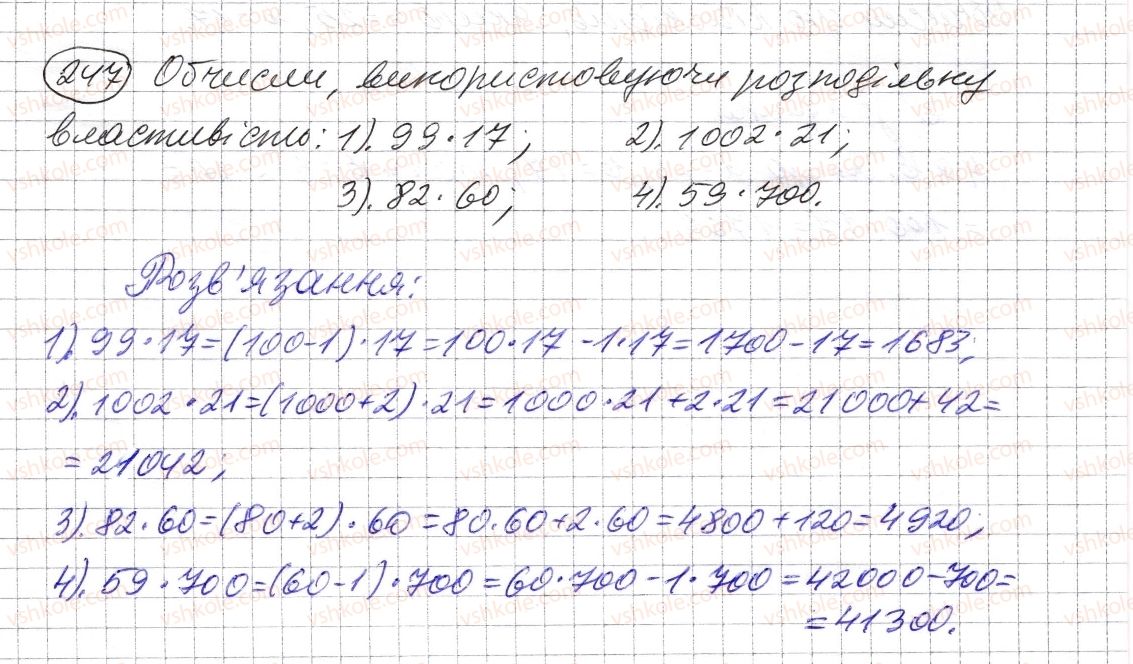 247 Обчисли, використовуючи розподільну
властивість: 1). 99·17; 2). 1002·21;
3). 82·60; 4). 59·700.
Розв'язання:
1). 99·17=(100-1)·17=100·17-1·17=1700-17=1683;
2). 1002·21=(1000+2)·21=1000·21+2·21=21000+42=
=21042;
3). 82·60=(80+2)·60=80·60+2·60=4800+120=4920;
4). 59·700=(60-1)·700=60·700-1·700=42000-700=
=41300.